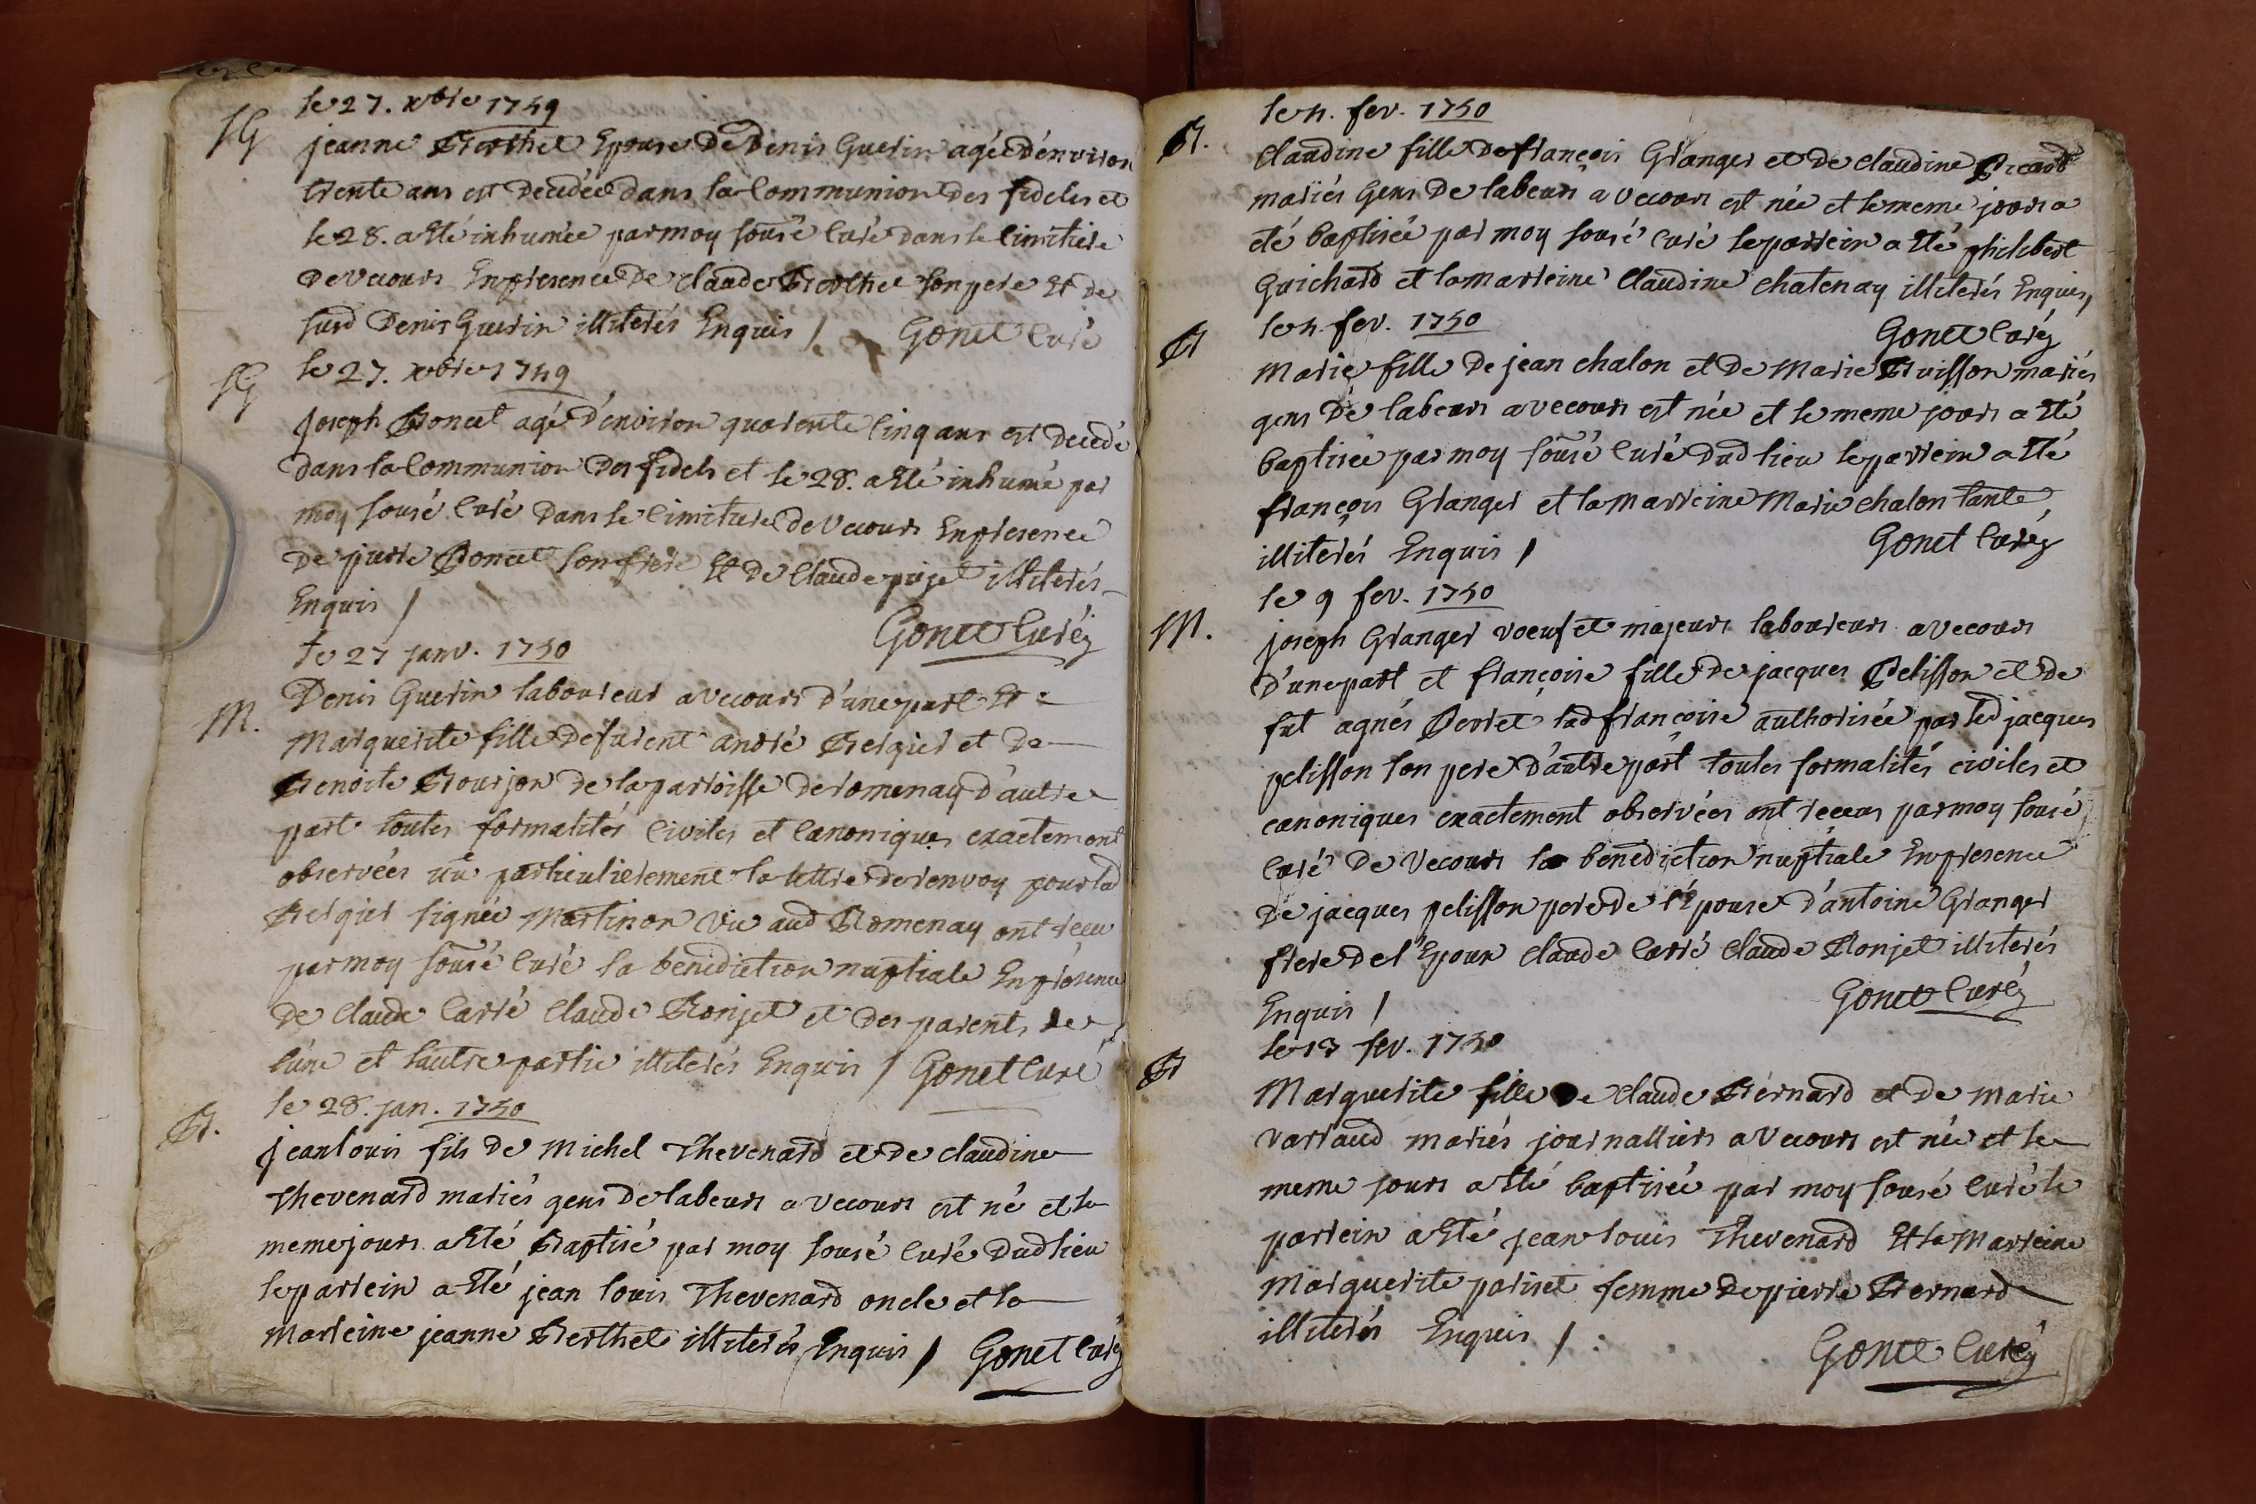 le 27. xbre 1749
SG
jeanne Berthet Epouse De Denis Guerin agée d'environ
trente ans est Decedée dans la Communion des fideles et
le 28. a Eté inhumée par moy sousé Curé dans le Cimitiere
De Vecours En presence De Claude Berthet son pere Et de
susd Denis Guerin illiterés Enquis / Gonet Curé
le 27. xbre 1749
SG
Joseph Poncet agé D'environ quarente Cinq ans est Decedé
dans la Communion Des fidels et le 28. a Eté inhumé par
moy sousé Curé Dans le Cimitiere de Vecours En presence
De pierre Poncet son frere Et De Claude pujet illiterés
Enquis /
Gonet Curé
le 27 janv. 1750
M.
Denis Guerin laboureur a Vecours d'une part Et
Marguerite fille defurent andré Bergier et De
Benoite Bourjon de la parroisse de romenay D'autre
part toutes formalités Civiles et Canoniques exactement
observées vû particulierement la lettre de renvoy pour lad
Bergier signée Martinon Vic aud Romenay ont reçu
par moy sousé Curé la benediction nuptiale En présence
De Claude Carré Claude Ronjet et Des parents De
l'une et l'autre partie illiterés Enquis / Gonet Curé
le 28. jan. 1750
B.
jean louis fils De Michel Thevenard et De claudine
Thevenard mariés gens De labeurs a Vecours est né et le
meme jours a Eté Baptisé par moy sousé Curé Dud lieu
le parrein a Eté jean louis Thevenard oncle et la
marreine jeanne Berthet illiterés Enquis / Gonet Curé
le 4. fev. 1750
B.
Claudine fille De françois Granger et De Claudine
mariés Gens De labeurs a Vecours est née et le meme jours a
eté baptisée par moy sousé Curé le parrein a Eté philibert
Guichard et la marreine Claudine Chatenay illiterés Enquis,
Gonet Curé
le 4. fev. 1750
B
Marie fille De jean chalon et De Marie Buisson mariés
gens De labeurs a vecours est née et le meme jours a Eté
baptisée par moy sousé Curé Dud lieu le parrein a Eté
françois Granger et la Marreine Marie chalon tante,
illiterés Enquis /
Gonet Curé
le 9 fev. 1750
M.
joseph Granger voeuf et majeurs laboureurs a vecours
d'une part et françoise fille De jacques Pelisson et De
fut agnés Perret lad françoise authorisée par led jacques
pelisson son pere D'autre part toutes formalités civiles et
canoniques exactement observées ont receus par moy sousé
Curé De Vecours la bénédiction nuptiale En presence
De jacques pelisson pere de l'Epouse d'antoine Granger
frere de l'Epoux Claude Carré Claude Ronjet illiterés
Enquis /
Gonet Curé
le 13 fev. 1750
B
Marguerite fille De Claude Bernard et De Marie
Varraud mariés journalliers a Vecours est née et le
meme jours a Eté baptisée par moy sousé Curé le
parrein a Eté jean louis Thevenard Et la Marreine
Marguerite pariset femme De pierre Bernard
illiterés Enquis /
Gonet Curé